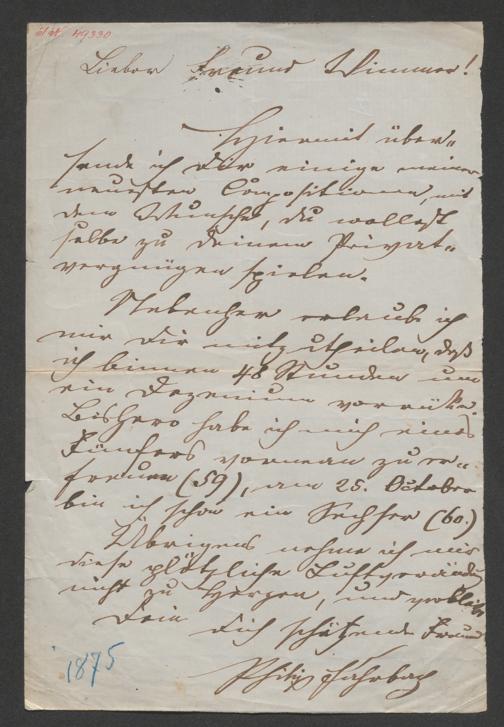 49330
Lieber Freund Wimmer!
Hiermit über-
sende ich Dir einige meiner
neuesten Compositionen, mit
dem Wunsche, du wollest
selbe zu Deinem Privat-
vergnügen spielen.
Nebenher erlaube ich
mir Dir mitzutheilen, daß
ich binnen 48 Stunden um
ein Dezenium vorrücke.
Bishero habe ich mich eines
Fünfers vornean zu er-
freuen (59), am 25. October
bin ich schon ein Sechser (60.)
Übrigens nehme ich mir
diese plötzliche
nicht zu Herzen, und verbleibe
Dein
Dich schätzender Freund
Philipp Fahrbach
1875